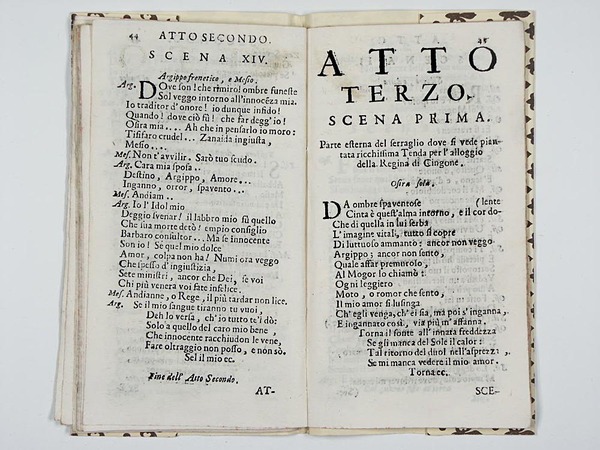 44 ATTO SECONDO.
SCENA XIV.
Argippo frenetico, e Mesio.
Arg. Dove son! che rimiro! ombre funeste
Sol veggo intorno all'innocẽza mia.
Io traditor d'onore! io dunque infido!
Quando! dove ciò fù! che far degg'io!
Osira mia.... Ah che in pensarlo io moro:
Tisifaro crudel... Zanaida ingiusta,
Mesio....
Mes. Non t'avvilir. Sarò tuo scudo.
Arg. Cara mia sposa..
Destino, Argippo, Amore...
Inganno, orror, spavento...
Mes. Andiam..
Arg. Io l'Idol mio
Deggio svenar! il labbro mio fù quello
Che sua morte detò! empio consiglio
Barbaro consultor... Ma se innocente
Son io! Se quel mio dolce
Amor, colpa non ha! Numi ora veggo
Che spesso d'ingiustizia,
Sete ministri, ancor che Dei, se voi
Chi più venera voi fate infelice.
Mes. Andianne, o Rege, il più tardar non lice.
Arg. Se il mio sangue tiranno tu vuoi,
Deh lo versa, ch'io tutto te'l dò:
Solo a quello del caro mio bene,
Che innocente racchiudon le vene,
Fare oltraggio non posso, e non sò.
Se il mio ec.
Fine dell' Atto Secondo.
AT-
45
ATTO
TERZO.
SCENA PRIMA.
Parte esterna del serraglio dove si vede pian-
tata ricchissima Tenda per l'alloggio
della Regina di Cingone.
Osira sola.
DA ombre spaventose (lente
Cinta è quest'alma intorno, e il cor do-
Che di quella in lui serba
L'imagine vitali, tutto si copre
Di luttuoso ammanto: ancor non veggo
Argippo; ancor non sento,
Quale affar premurolo,
Al Mogor lo chiamò:
Ogni leggiero
Moto, o romor che sento,
Il mio amor si lusinga
Ch'egli venga, ch'ei sia, mà poi s'inganna,
E ingannato così, via più m'affanna.
Torna il fonte all'innata freddezza
Se gli manca del Sole il calor:
Tal ritorno del duol nell'asprezza,
Se mi manca vedere il mio amor.
Torna ec.
SCE-